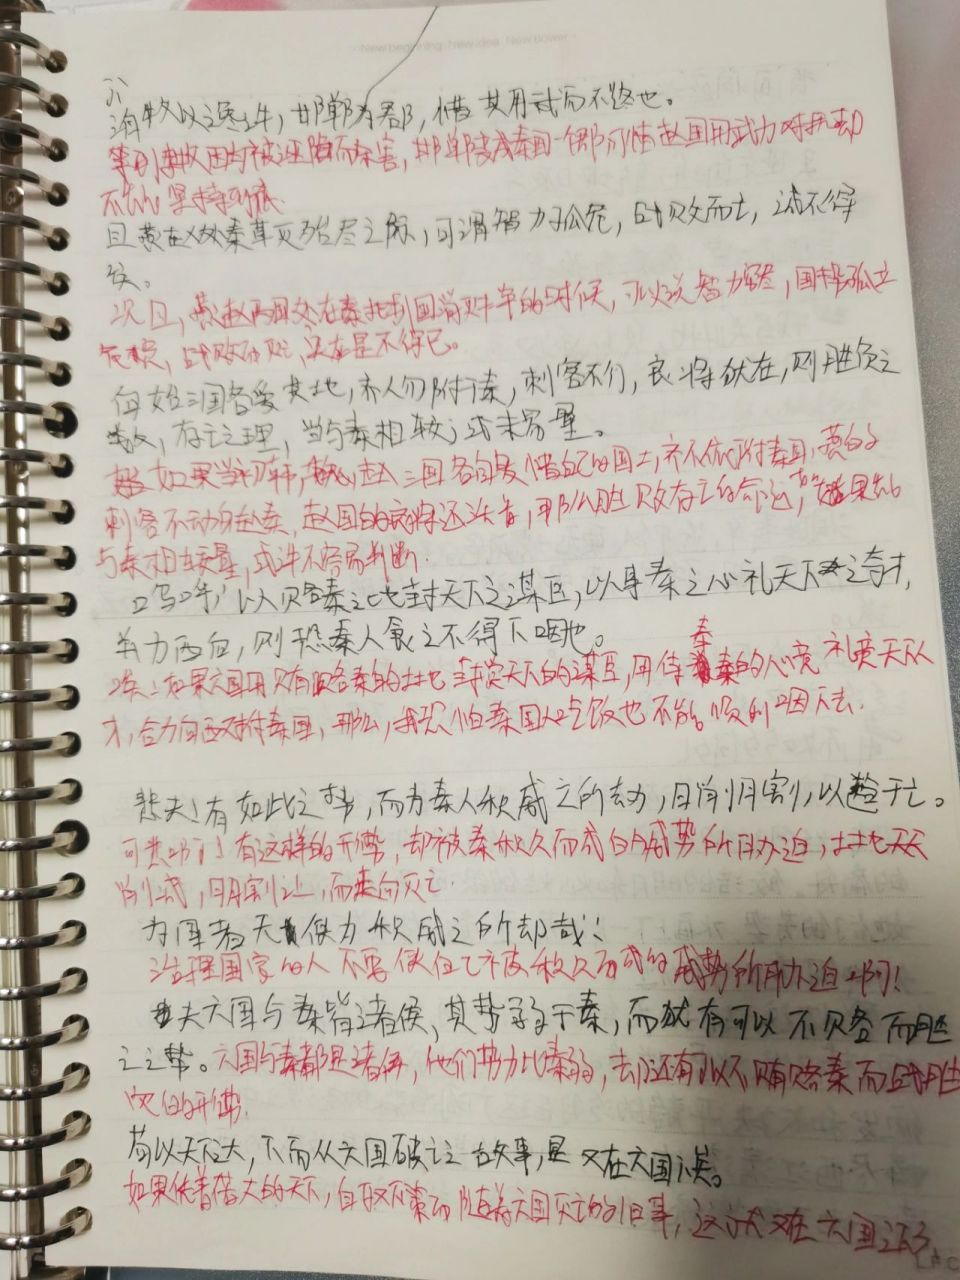 New beginning New idea New power
以谗诛，邯郸为郡，惜其用武而不终也。
等到李牧因为被诬陷而杀害，邯郸变成秦国一郡，可惜赵国用武力对抗却
不能坚持到底
且燕赵处秦革灭殆尽之际，可谓智力孤危，战败而亡，诚不得
次且，燕赵两国处在秦把别国消灭的时候，可以说智力穷尽，国势孤立
危急，战败而死，实在是不得已。
向使三国各爱其地，齐人勿附秦，刺客不行，良将犹在，则胜负之
数，存亡之理，当与秦相较，或未易量。
如果当初韩，魏，赵三国各自爱惜自己的国土，齐不依附秦国，燕的
刺客不动身赴秦，赵国的良将还活着，那么胜败存亡的命运，如果
与秦相较量，或许不容易判断.
呜呼！以赂秦之地封天下之谋臣，以事秦之心礼天下之奇才，
并力西向，则恐秦人食之不得下咽也。
秦
如果六国用贿赂秦的土地封赏天下的谋臣，用侍秦的心意礼贤天下
才，合力向西对付秦国，那么，我恐怕秦国人吃饭也不能顺利咽下去.
悲夫！有如此之势，而为秦人积威之所劫，日削月割，以趋于亡。
可悲啊！有这样的形势，却被秦积久而成的威势所胁迫，土地天天
削减，月月割让，而走向灭亡.
为国者无使为积威之所劫哉！
治理国家的人不要使自己被积久而成的威势所胁迫啊！
夫六国与秦皆诸侯，其势弱于秦，而犹有可以不赂而胜
之之势。六国与秦都是诸侯，他们势力比秦弱，却还有可以不贿赂秦而战胜
它的形势.
苟以天下之大，下而从六国破亡之故事，是又在六国下矣。
如果凭着偌大的天下，自取下策而随着六国灭亡的旧事，这就又在六国之下了